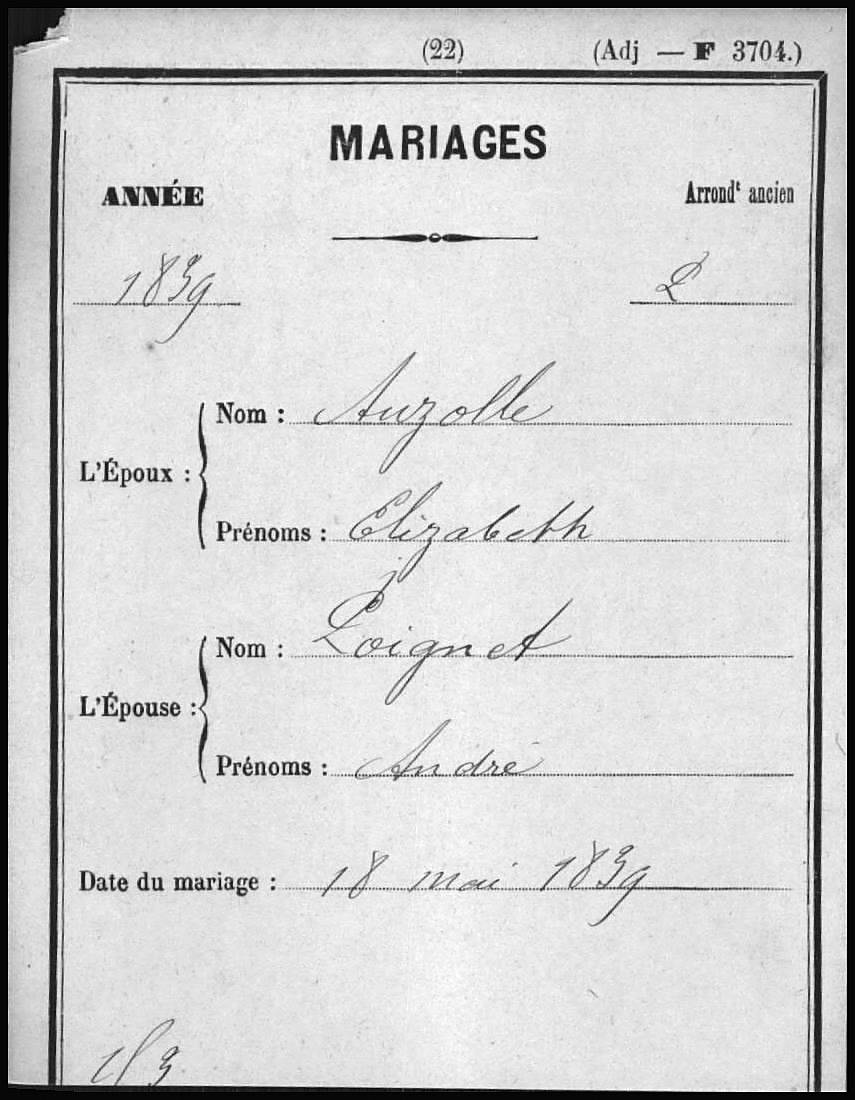 (22) (Adj — F 3704.)
MARIAGES
ANNÉE Arrondt ancien
1839 2
L'Époux :
Nom : Auzolle
Prénoms : Elizabeth
L'Épouse :
Nom : Loignet
Prénoms : André
Date du mariage : 18 mai 1839